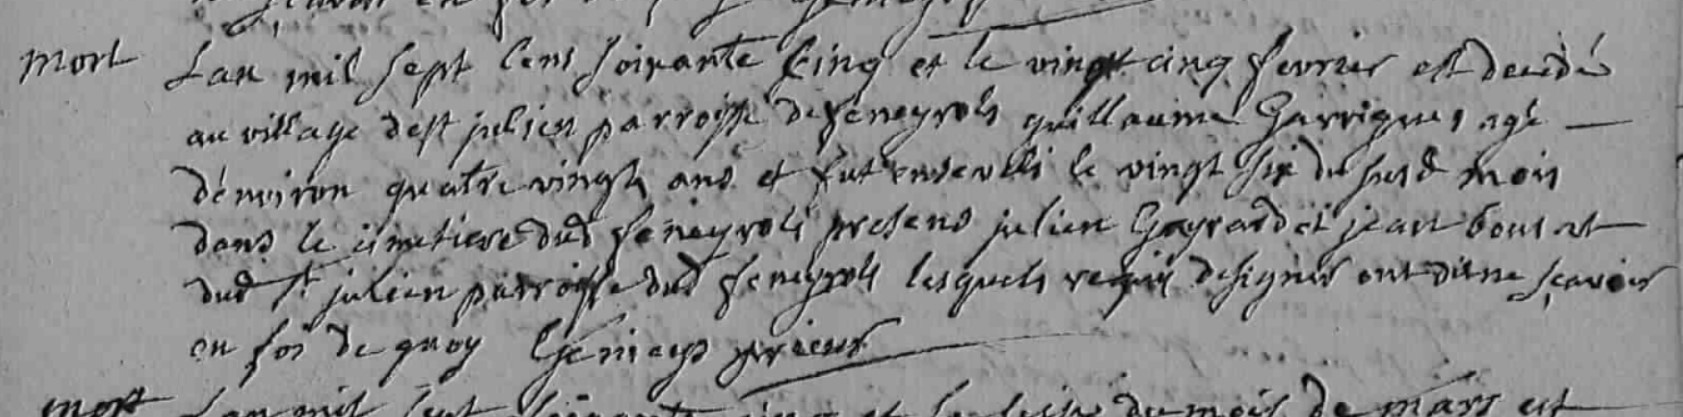 mort
Lan mil sept cens soixante cinq et le vingt cinq fevrier est decedé
au village de st julien parroisse de feneyrols guillaume Garrigues agé
d'environ quatre vingts ans et fut enseveli le vingt six du susd mois
dans le cimetiere dud feneyrols presens julien Gayrard et jean
dud st julien parroisse dud feneyrols lesquels requis de signer ont dit ne sçavoir
en foi de quoy Genieys prieur
mort Lan mil sept soixante cinq et le du mois de mars est